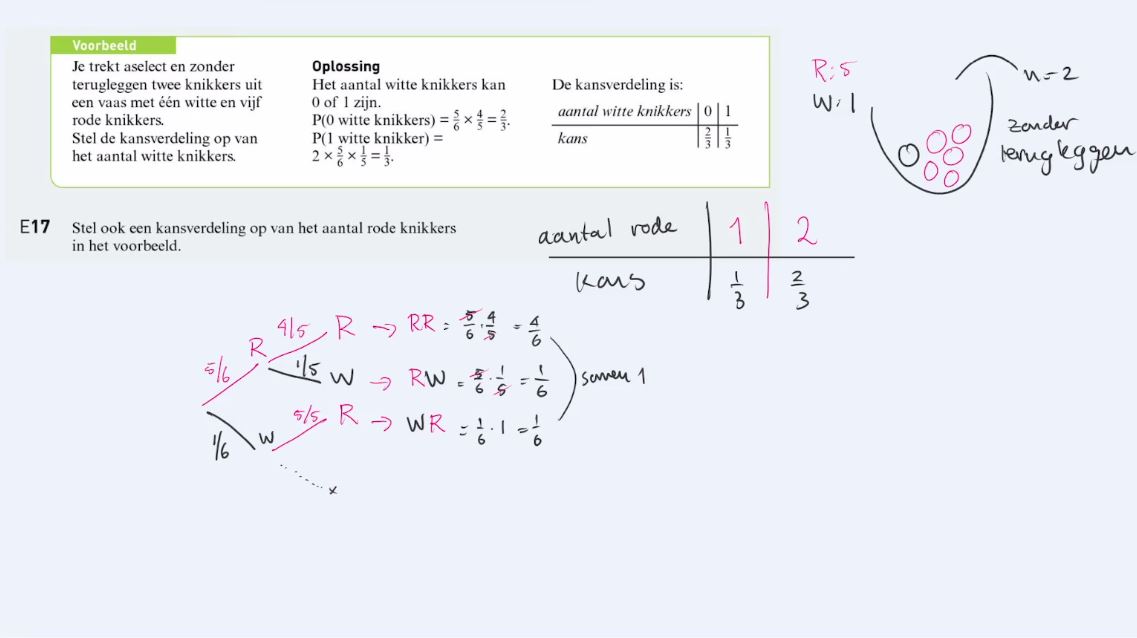 Voorbeeld
Je trekt aselect en zonder
terugleggen twee knikkers uit
een vaas met één witte en vijf
rode knikkers.
Stel de kansverdeling op van
het aantal witte knikkers.
Oplossing
Het aantal witte knikkers kan
0 of 1 zijn.
P(0 witte knikkers) = 5/6 × 4/5 = 2/3.
P(1 witte knikker) =
2 × 5/6 × 1/5 = 1/3.
De kansverdeling is:
aantal witte knikkers | 0 | 1
kans | 2/3 | 1/3
R: 5
W: 1
n = 2
zonder
terugleggen
E17 Stel ook een kansverdeling op van het aantal rode knikkers
in het voorbeeld.
aantal rode | 1 | 2
kans | 1/3 | 2/3
5/6 R 4/5 R → RR = 5/6 · 4/5 = 4/6
1/5 W → RW = 5/6 · 1/5 = 1/6
samen 1
1/6 W 5/5 R → WR = 1/6 · 1 = 1/6
x